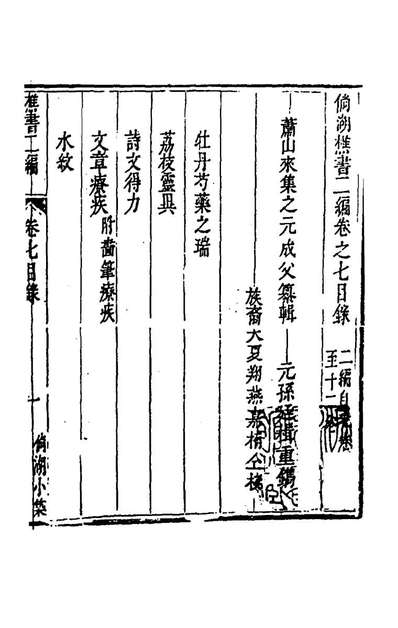 倘湖樵書二編卷之七目錄
二編自
至十二
蕭山來集之元成父纂輯 元孫
重鐫
族裔大夏翔燕嘉
仝梓
牡丹芍藥之瑞
荔枝靈異
詩文得力
文章療疾
水紋
樵書二編
卷七目錄
一
倘湖小築